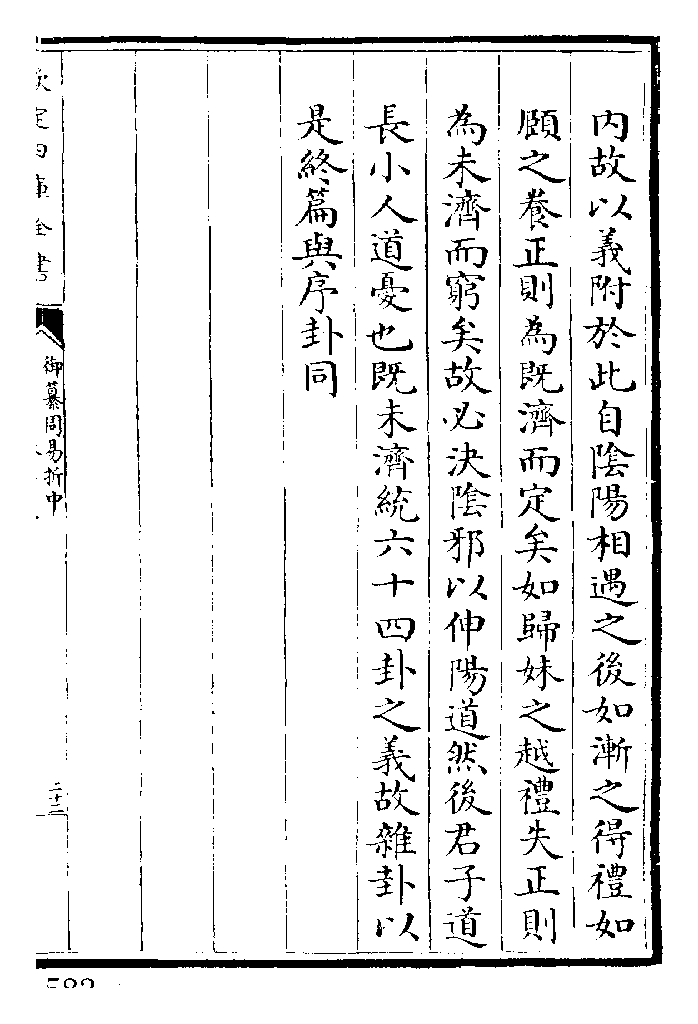 内故以義附於此自陰陽相遇之後如漸之得禮如
頤之養正則為既濟而定矣如歸妹之越禮失正則
為未濟而窮矣故必決陰邪以伸陽道然後君子道
長小人道憂也既未濟統六十四卦之義故雜卦以
是終篇與序卦同
欽定四庫全書
御纂周易折中
二十二